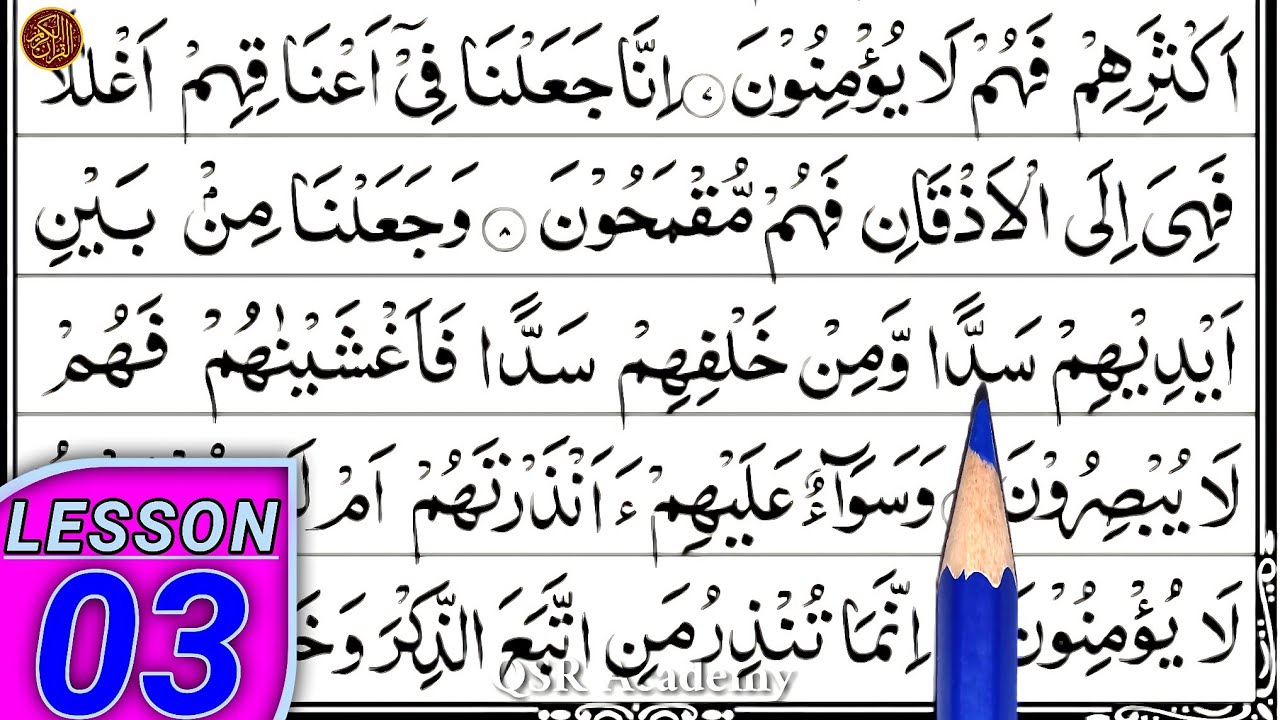 اَكْثَرِهِمْ فَهُمْ لَا يُؤْمِنُوْنَ ۷ اِنَّا جَعَلْنَا فِيْۤ اَعْنَاقِهِمْ اَغْلٰلًا
فَهِيَ اِلَى الْاَذْقَانِ فَهُمْ مُّقْمَحُوْنَ ۸ وَ جَعَلْنَا مِنْۢ بَيْنِ
اَيْدِيْهِمْ سَدًّا وَّ مِنْ خَلْفِهِمْ سَدًّا فَاَغْشَيْنٰهُمْ فَهُمْ
لَا يُبْصِرُوْنَ وَ سَوَآءٌ عَلَيْهِمْ ءَاَنْذَرْتَهُمْ اَمْ
لَا يُؤْمِنُوْنَ اِنَّمَا تُنْذِرُ مَنِ اتَّبَعَ الذِّكْرَ وَ
LESSON
03
QSR Academy
القرآن الكريم